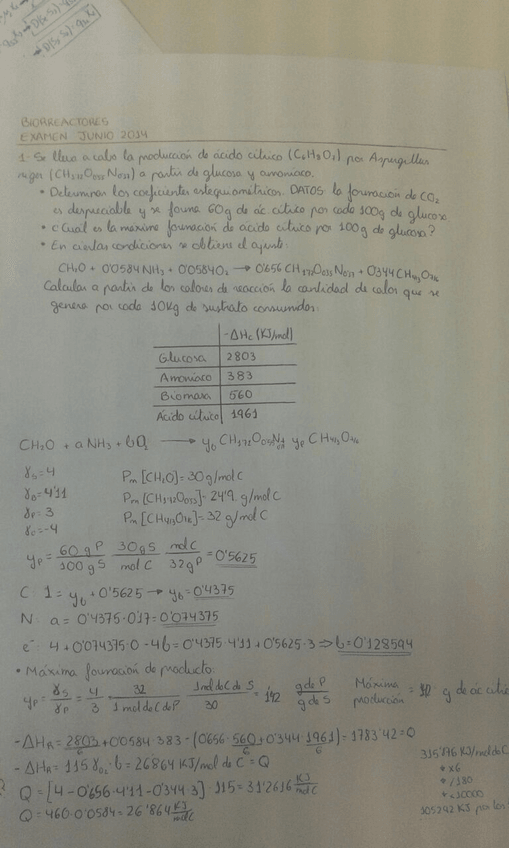 BIORREACTORES
EXAMEN JUNIO 2014
1- Se lleva a cabo la producción de ácido cítrico (C6H8O7) por Aspergillus
niger (CH1'72O0'55N0'17) a partir de glucosa y amoniaco.
• Determinar los coeficientes estequiométricos. DATOS la formación de CO2
es despreciable y se forma 60g de ác. cítrico por cada 100g de glucosa.
• ¿Cuál es la máxima formación de ácido cítrico por 100g de glucosa?
• En ciertas condiciones se obtiene el ajuste:
CH2O + 0'0584 NH3 + 0'0584 O2 → 0'656 CH1'72O0'55N0'17 + 0'344 CH4/3O7/6
Calcular a partir de los calores de reacción la cantidad de calor que se
genera por cada 10Kg de sustrato consumidos:
-ΔHc (KJ/mol)
Glucosa 2803
Amoniaco 383
Biomasa 560
Ácido cítrico 1961
CH2O + a NH3 + b O2 → yb CH1'72O0'55N0'17 yp CH4/3O7/6
γs = 4
γb = 4'11
γp = 3
γc = -4
Pm [CH2O] = 30 g/mol C
Pm [CH1'72O0'55] = 24'9 g/mol C
Pm [CH4/3O7/6] = 32 g/mol C
yp = 60 g P / 100 g S 30 g S / mol C mol C / 32 g P = 0'5625
C: 1 = yb + 0'5625 → yb = 0'4375
N: a = 0'4375·0'17 = 0'074375
e-: 4 + 0'074375·0 - 4b = 0'4375·4'11 + 0'5625·3 ⇒ b = 0'128594
• Máxima formación de producto:
yp = γs / γp = 4 / 3 32 / 1 mol de C de P 1 mol de C de S / 30 = 1'42 g de P / g de S Máxima producción = g de ác cítrico
-ΔHR = 2803 / 6 + 0'0584·383 - (0'656·560 + 0'344·1961 / 6) = 1783'42 = Q
-ΔHR = 115 γO2·b = 26'864 KJ/mol de C = Q
Q = [4 - 0'656·4'11 - 0'344·3]·115 = 31'2616 KJ / mol C
Q = 460·0'0584 = 26'864 KJ / mol C
KJ/mol de C
* x6
* /180
* x10000
305292 KJ por los